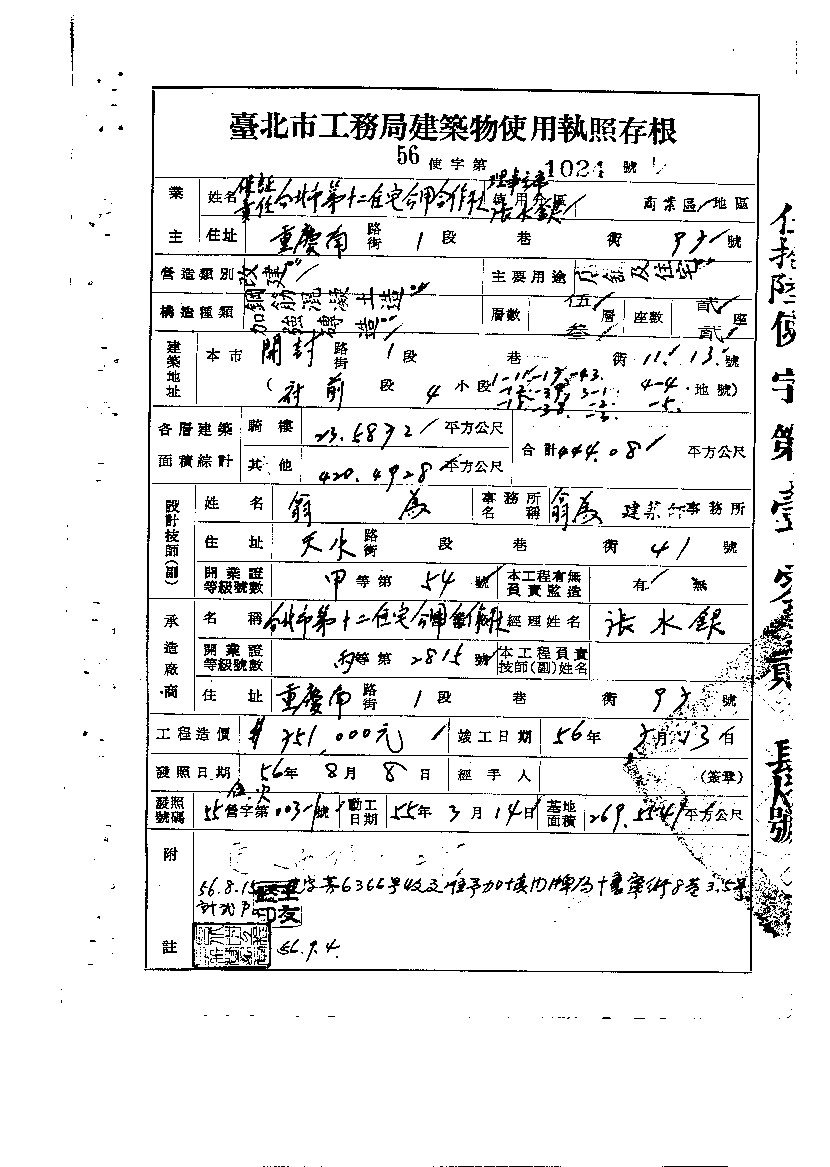 臺北市工務局建築物使用執照存根
56 使字第 1024 號
業主 姓名 保証責任台北市第十二住宅合用合作社 理事主席 張水銀 使用分區 商業區 地區
住址 重慶南 路街 1 段 巷 街 93 號
營造類別 改建 主要用途 店舖及住宅
構造種類 鋼筋混凝土造 加強磚造 層數 伍 叁 層 座數 貳 貳 座
建築地址 本市 開封 路街 1 段 巷 街 11. 13. 號
( 段 4 小段 地號)
各層建築面積綜計 騎樓 23.5872 平方公尺 合計 444.08 平方公尺
其他 420.4928 平方公尺
設計技師(副) 姓名 翁為 事務所名稱 翁為 建築師事務所
住址 天水 路街 段 巷 街 41 號
開業證等級號數 甲 等第 54 號 本工程有無負責監造 有 無
承造廠商 名稱 台北市第十二住宅合用合作社 經理姓名 張水銀
開業證等級號數 丙 等第 2815 號 本工程負責技師(副)姓名
住址 重慶南 路街 1 段 巷 街 93 號
工程造價 351,000元 竣工日期 56 年 月 13 日
發照日期 56 年 8 月 8 日 經手人 (簽章)
發照號碼 55 營字第 號 動工日期 55 年 3 月 14 日 基地面積 269.554 平方公尺
附註
56.8.15
56.9.4.
伍拾陸使字第壹零貳肆號